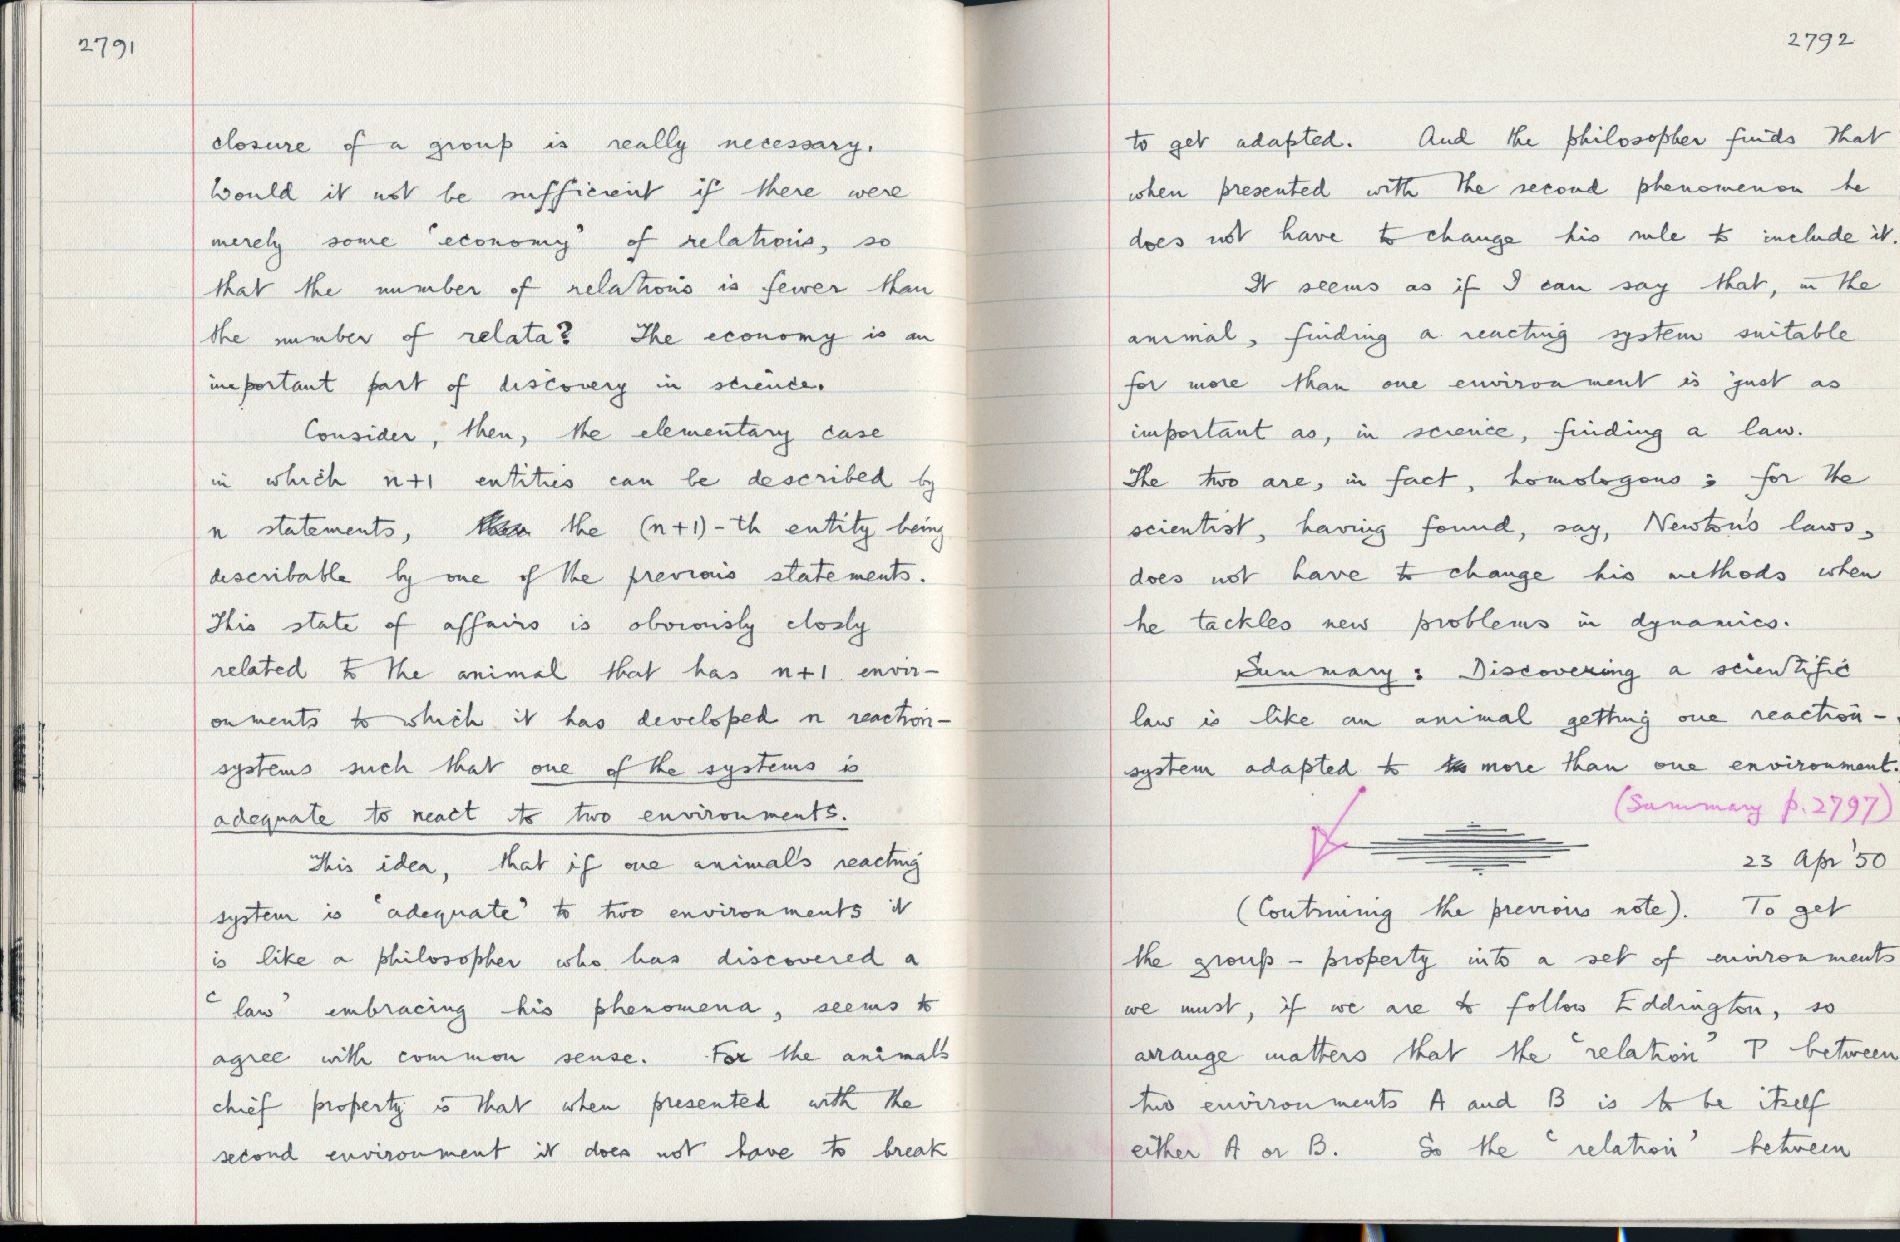 2791
closure of a group is really necessary.
Would it not be sufficient if there were
merely some 'economy' of relations, so
that the number of relations is fewer than
the number of relata? The economy is an
important part of discovery in science.
Consider, then, the elementary case
in which n+1 entities can be described by
n statements, the (n+1)-th entity being
describable by one of the previous statements.
This state of affairs is obviously closly
related to the animal that has n+1 envir-
onments to which it has developed n reaction-
systems such that one of the systems is
adequate to react to two environments.
This idea, that if one animal's reacting
system is 'adequate' to two environments it
is like a philosopher who has discovered a
'law' embracing his phenomena, seems to
agree with common sense. For the animal's
chief property is that when presented with the
second environment it does not have to break
2792
to get adapted. And the philosopher finds that
when presented with the second phenomenon he
does not have to change his rule to include it.
It seems as if I can say that, in the
animal, finding a reacting system suitable
for more than one environment is just as
important as, in science, finding a law.
The two are, in fact, homologous; for the
scientist, having found, say, Newton's laws,
does not have to change his methods when
he tackles new problems in dynamics.
Summary: Discovering a scientific
law is like an animal getting one reaction-
system adapted to more than one environment.
(Summary p. 2797)
23 Apr '50
(Continuing the previous note). To get
the group-property into a set of environments
we must, if we are to follow Eddington, so
arrange matters that the 'relation' P between
two environments A and B is to be itself
either A or B. So the 'relation' between